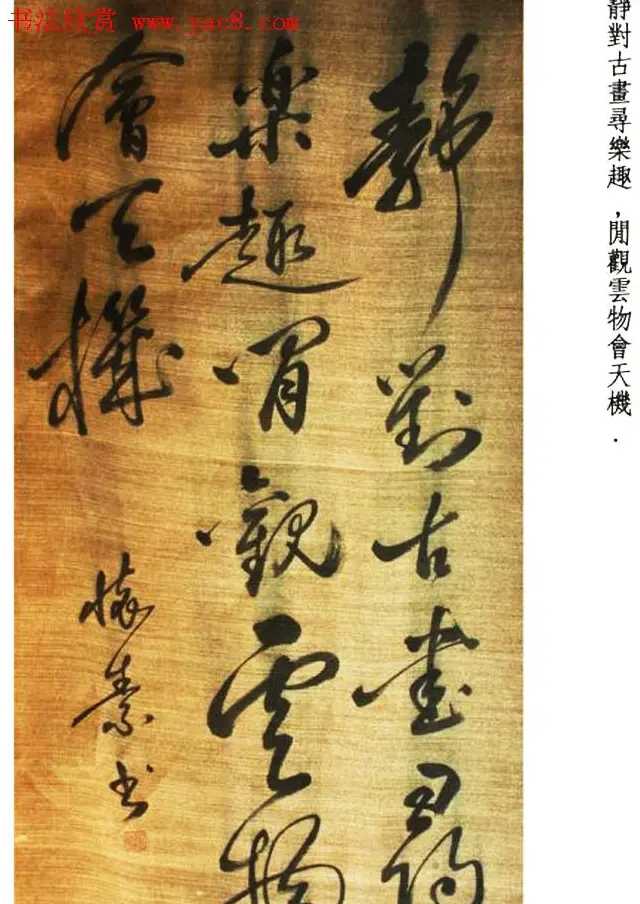 书法欣赏 www.yac8.com
靜對古畫尋樂趣，閒觀雲物會天機．
靜對古畫尋
樂趣閒觀雲物
會天機
懷素書